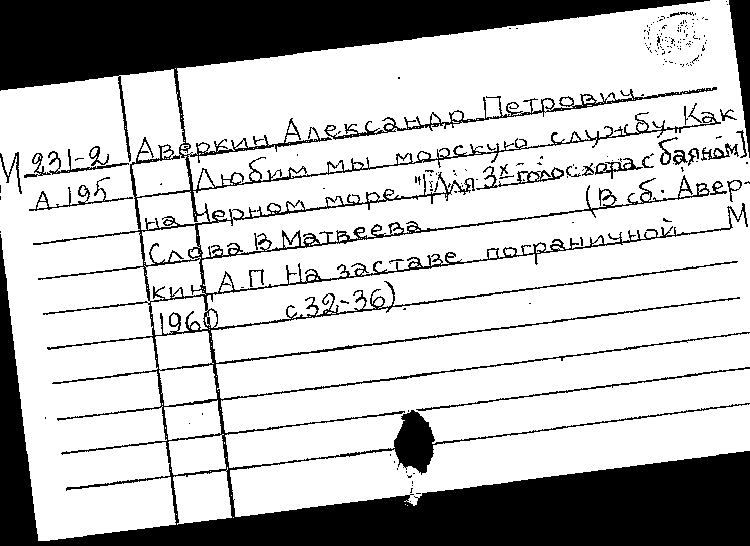 Аверкин, Александр Петрович.
М 231-2 Любим мы морскую службу „Как
А.195 на Черном море." [Для 3х-голос. хора с баяном]
Слова В. Матвеева. (В сб.: Авер-
кин, А.П. На заставе пограничной. М
1960 с.32-36)